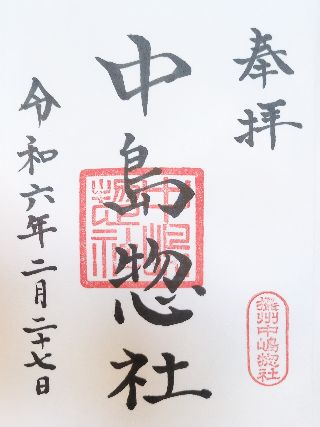 奉拝
中島惣社
令和六年二月二十七日
中嶋惣社
播州中嶋惣社